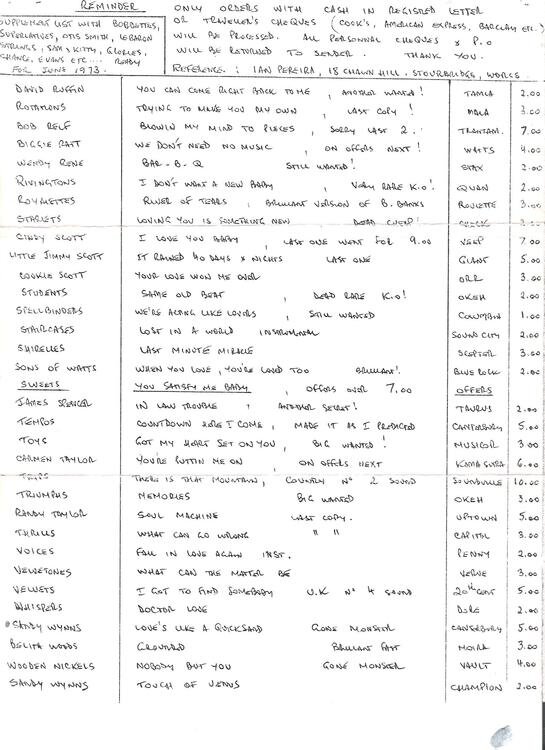 REMINDER
ONLY ORDERS WITH CASH IN REGISTED LETTER
OR TRAVELER'S CHEQUES (COOK'S, AMERICAN EXPRESS, BARCLAY ETC.)
WILL BE PROCESSED. ALL PERSONNAL CHEQUES & P.O
WILL BE RETURNED TO SENDER. THANK YOU.
REFERENCE: IAN PEREIRA, 18 CHAWN HILL, STOURBRIDGE, WORCS
SUPPLEMENT LIST WITH BOBBETTES,
SUPERLATIVES, OTIS SMITH, LEBARON
STRINGS, SAM & KITTY,
CHANCE, EVANS ETC.... READY
FOR JUNE 1973.
DAVID RUFFIN YOU CAN COME RIGHT BACK TO ME, ANOTHER WANTED! TAMLA 2.00
ROTATIONS TRYING TO MAKE YOU MY OWN, LAST COPY! MALA 3.00
BOB RELF BLOWIN MY MIND TO PIECES, SORRY LAST 2. TRANTAM. 7.00
BIGGIE RATT WE DON'T NEED NO MUSIC, ON OFFERS NEXT! WATTS 4.00
WENDY RENE BAR-B-Q STILL WANTED! STAX 2.00
RIVINGTONS I DON'T WANT A NEW BABY, VERY RARE K.O! QUAN 2.00
ROYALETTES RIVER OF TEARS, BRILLIANT VERSION OF B. BANKS ROULETTE 3.00
STARLETS LOVING YOU IS SOMETHING NEW DEAD CHEAP! CHESS 3.00
CINDY SCOTT I LOVE YOU BABY, LAST ONE WENT FOR 9.00 VEEP 7.00
LITTLE JIMMY SCOTT IT RAINED 40 DAYS & NIGHTS LAST ONE GIANT 5.00
COOKIE SCOTT YOUR LOVE WON ME OVER ORR 3.00
STUDENTS SAME OLD BEAT, DEAD RARE K.O! OKEH 2.00
SPELLBINDERS WE'RE ACTING LIKE LOVERS, STILL WANTED COLUMBIA 1.00
STAIRCASES LOST IN A WORLD INSTRUMENTAL SOUND CITY 2.00
SHIRELLES LAST MINUTE MIRACLE SCEPTER 3.00
SONS OF WATTS WHEN YOU LOVE, YOU'RE LOVED TOO BRILLIANT! BLUE ROCK 2.00
SWEETS YOU SATISFY ME BABY, OFFERS OVER 7.00 OFFERS
JAMES SPENCER IN LAW TROUBLE, ANOTHER SECRET! TAURUS 2.00
TEMPOS COUNTDOWN HERE I COME, MADE IT AS I PREDICTED CANTERBURY 5.00
TOYS GOT MY HEART SET ON YOU, BIG WANTED! MUSICOR 3.00
CARMEN TAYLOR YOU'RE PUTTIN ME ON, ON OFFERS NEXT KAMA SUTRA 6.00
THERE IS THAT MOUNTAIN, COUNTRY Nº 2 SOUND SOUNDVILLE 10.00
TRIUMPHS MEMORIES BIG WANTED OKEH 3.00
RANDY TAYLOR SOUL MACHINE LAST COPY. UPTOWN 5.00
THRILLS WHAT CAN GO WRONG " " CAPITOL 3.00
VOICES FALL IN LOVE AGAIN INST. PENNY 2.00
VELVETONES WHAT CAN THE MATTER BE VERVE 3.00
VELVETS I GOT TO FIND SOMEBODY U.K Nº 4 SOUND 20TH CENT 5.00
WHISPERS DOCTOR LOVE DORE 2.00
SANDY WYNNS LOVE'S LIKE A QUICKSAND GONE MONSTER CANTERBURY 5.00
BELITA WOODS GROUNDED BRILLIANT FAST MOIRA 3.00
WOODEN NICKELS NOBODY BUT YOU GONE MONSTER VAULT 4.00
SANDY WYNNS TOUCH OF VENUS CHAMPION 2.00